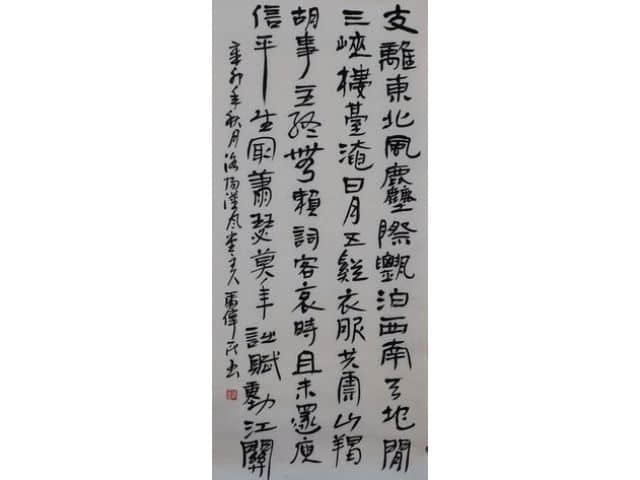 支離東北風塵際飄泊西南天地閒
三峽樓臺淹日月五谿衣服共雲山羯
胡事主終無賴詞客哀時且未還庾
信平生最蕭瑟莫年詩賦動江關
辛卯年秋月洛陽漢風堂主人 偉民書